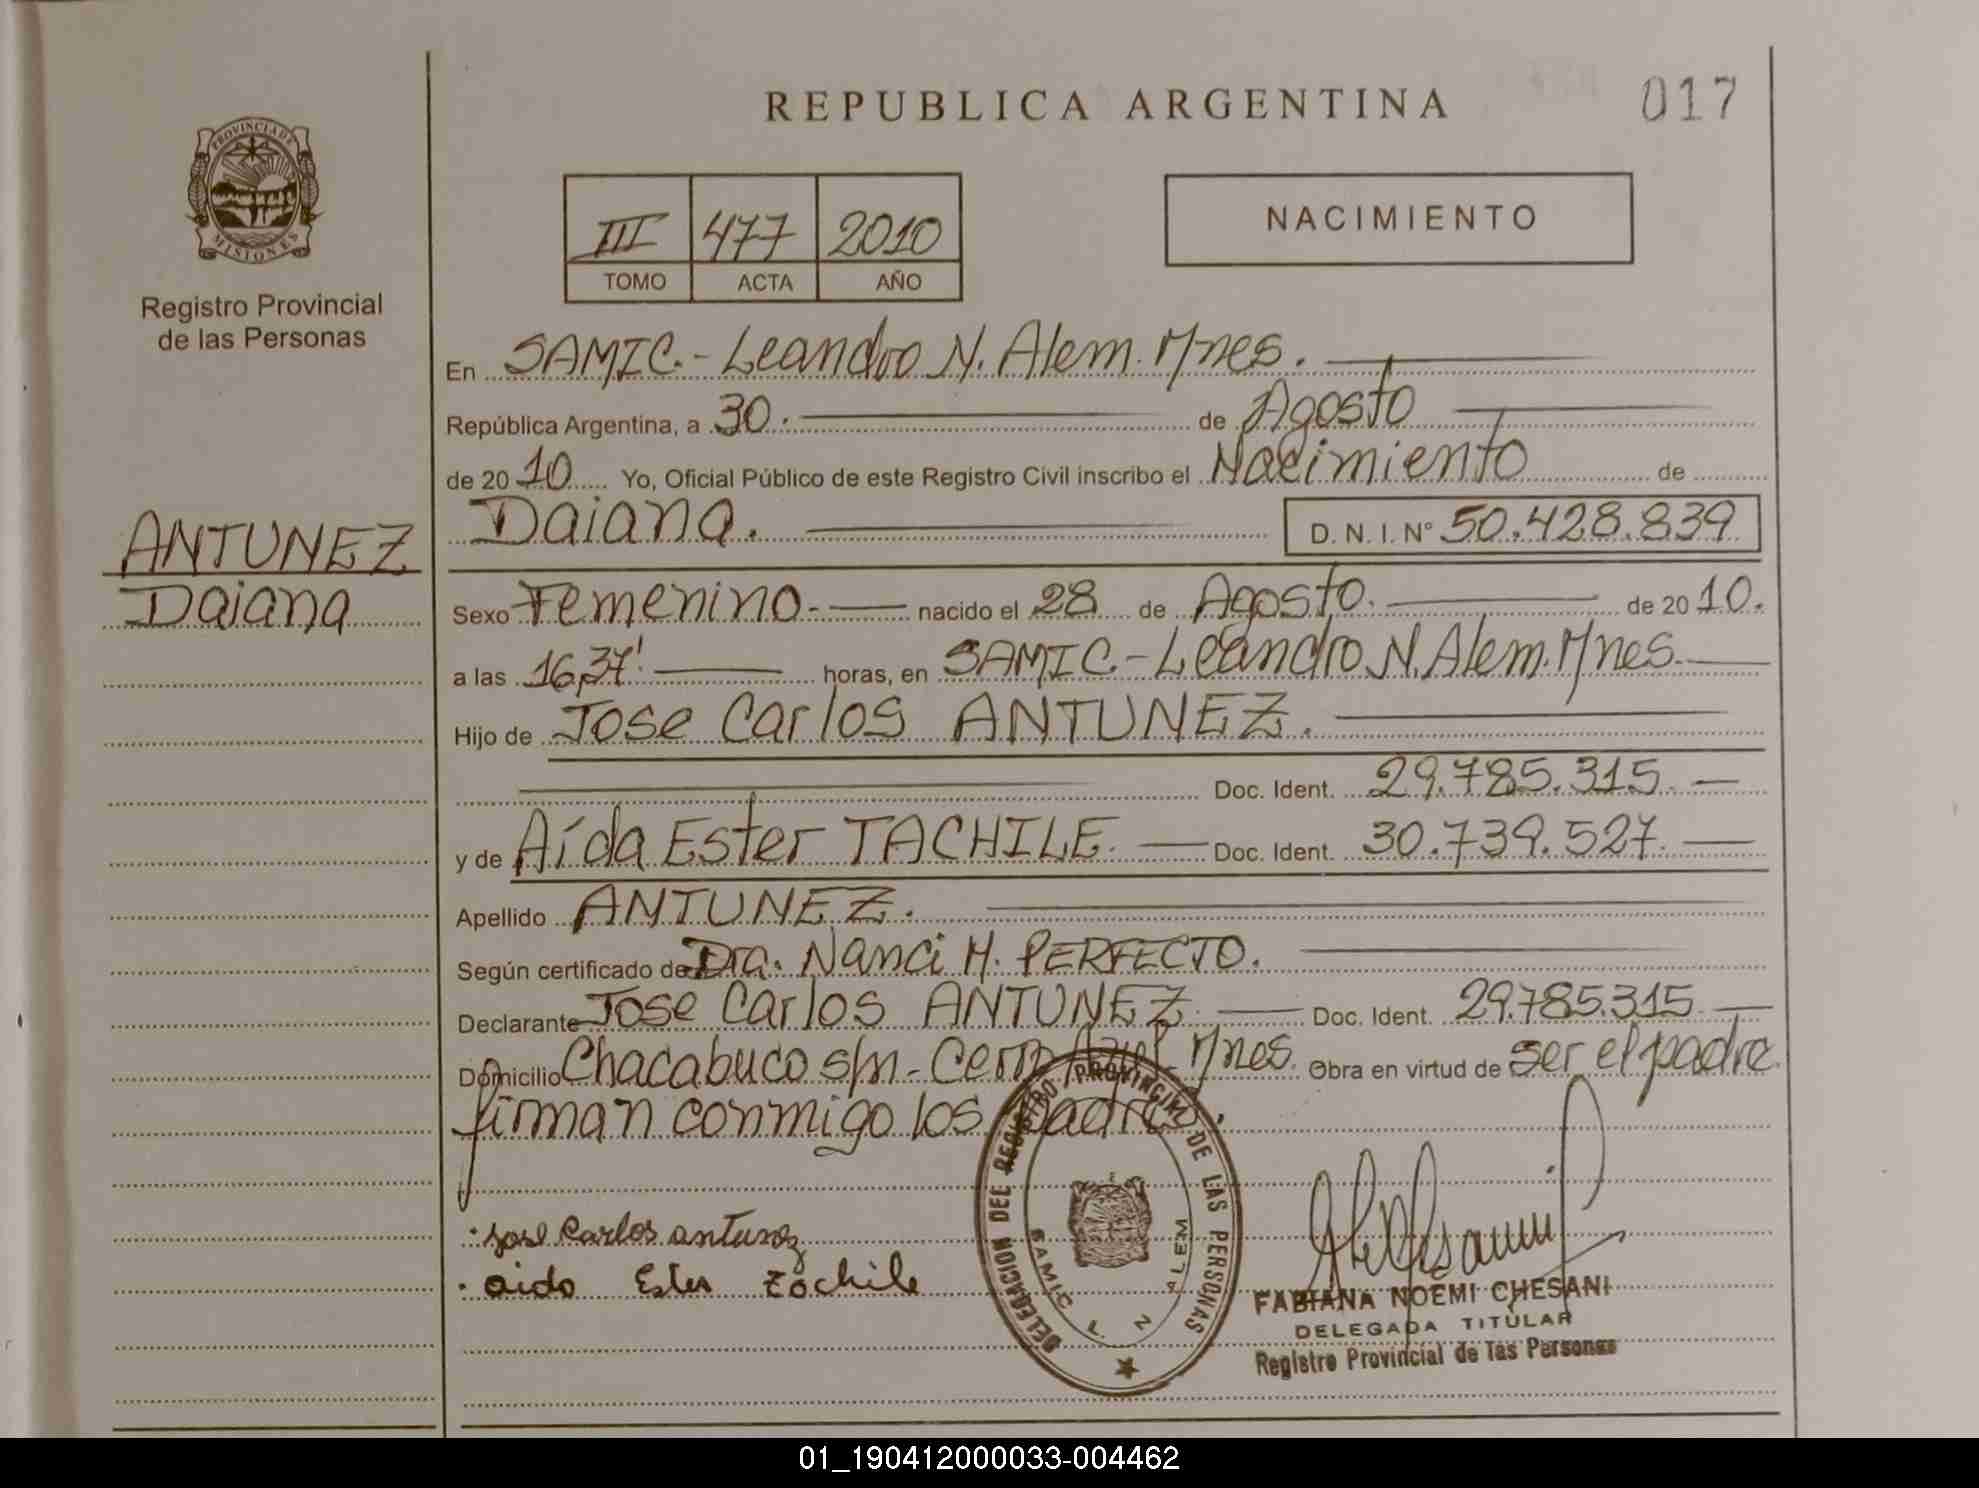 REPUBLICA ARGENTINA
017
PROVINCIA DE
MISIONES
Registro Provincial
de las Personas
III 477 2010
TOMO ACTA AÑO
NACIMIENTO
En SAMIC.- Leandro N. Alem. Mnes.
República Argentina, a 30. de Agosto
de 2010 Yo, Oficial Público de este Registro Civil inscribo el Nacimiento de
Daiana. D. N. I. N° 50.428.839
ANTUNEZ
Daiana
Sexo Femenino.- nacido el 28 de Agosto. de 2010.
a las 16,37' horas, en SAMIC - Leandro N. Alem. Mnes.
Hijo de Jose Carlos ANTUNEZ.
Doc. Ident. 29.785.315.
y de Aída Ester TACHILE. Doc. Ident. 30.739.527.
Apellido ANTUNEZ.
Según certificado de Dra. Nanci M. PERFECTO.
Declarante Jose Carlos ANTUNEZ. Doc. Ident. 29.785.315
Domicilio Chacabuco s/n - Cerro Azul - Mnes. Obra en virtud de ser el padre.
firman conmigo los padres.
DELEGACION DEL REGISTRO PROVINCIAL DE LAS PERSONAS
SAMIC L. N ALEM
Jose Carlos antunez
aida Ester Zachile
FABIANA NOEMI CHESANI
DELEGADA TITULAR
Registro Provincial de las Personas
01_190412000033-004462